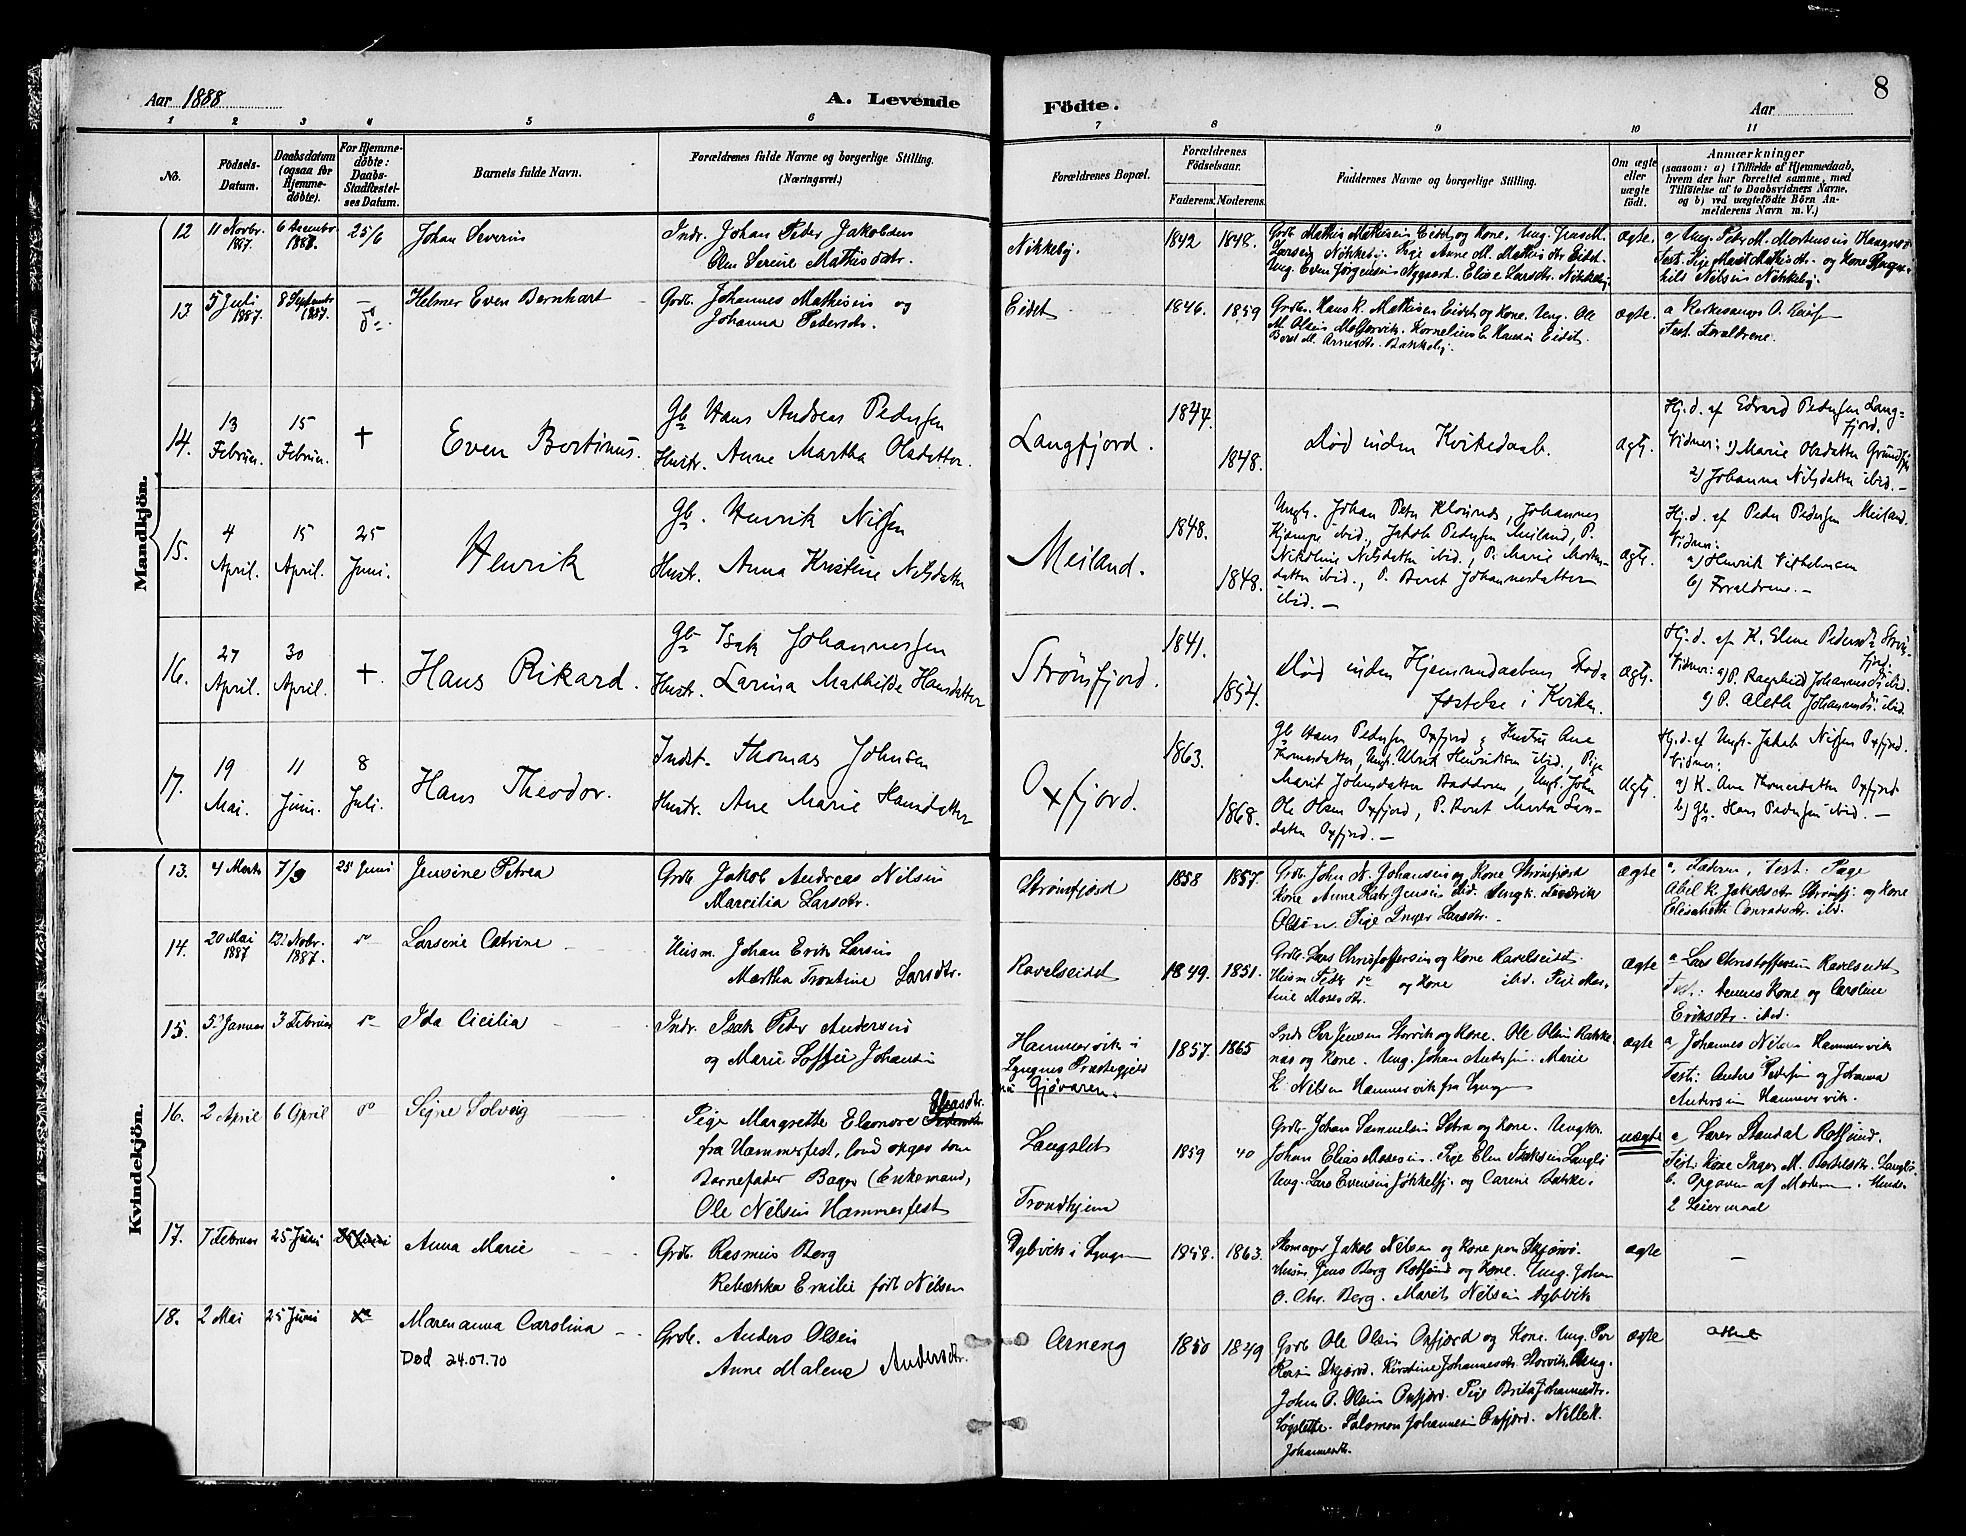 8
Aar 1888
A. Levende
Födte.
Aar
1 2 3 4 5 6 7 8 9 10 11
No.
Födsels-
Datum.
Daabsdatum
(ogsaa for
Hjemme-
döbte).
For Hjemme-
döbte:
Daabs-
Stadfæstel-
ses Datum.
Barnets fulde Navn.
Forældrenes fulde Navne og borgerlige Stilling.
(Næringsvei.)
Forældrenes Bopæl.
Forældrenes
Födselsaar.
Faderens. Moderens.
Faddernes Navne og borgerlige Stilling.
Om ægte
eller
uægte
födt.
Anmærkninger
(saasom: a) i Tilfælde af Hjemmedaab,
hvem der har forrettet samme, med
Tilföielse af to Daabsvidners Navne.
og b) ved uægtefödte Börn An-
melderens Navn m. V.)
Mandkjön.
12
11 Novbr.
1887.
6 Decembr
1887.
25/6
Johan Severin
Indr. Johan Peder Jakobsen
Elen Serine Mathisdatr.
Nikkeby.
1842 1848.
Grdb. Mathis Mathisen Eidet og Kone. Ung. Jens M.
Larsen Nikkeby. Pige Anne M. Mathisdtr Eidet.
Ung. Even Jørgensen Nygaard. Elise Larsdtr. Nikkeby
ægte.
a) Ung. Peder M. Mortensen Haugnes
Test. Pige Marit Mathisdtr. og Kone Ragn-
hild Nilsen Nikkeby.
13
5 Juli
1887.
8 Septembr
1887.
do
Helmer Even Bernhart
Grdb. Johannes Mathisen og
Johanna Pedersdr.
Eidet
1846. 1859
Grdb. Hans K. Mathisen Eidet og Kone. Ung. Ole
M. Olsen Molfjorvik. Kornelius E. Hansen Eidet.
Beret M. Arnesdtr. Bakkeby.
ægte.
a Kirkesanger O.
Test. Forældrene.
14.
13
Februar.
15
Februar.
+
Even Bertinus.
Gb. Hans Andreas Pedersen
Hustr. Anne Martha Olsdatter.
Langfjord.
1844.
1848.
Død inden Kirkedaab.
ægt.
Hj.d. af Edvard Pedersen Lang-
fjord.
Vidner: 1) Marie Olsdatter Grundfj
2) Johanna Nilsdatter ibid. —
15.
4
April.
15
April.
25
Juni.
Henrik
Gb. Henrik Nilsen
Hustr. Anna Kristine Nilsdatter
Meiland.
1848.
1848.
Ungk. Johan Peter Klosnes, Johannes
Kjempe ibid., Jakob Pedersen Meiland, P.
Nikoline Nilsdatter ibid., P. Marie Morten-
datter ibid., P. Beret Johannesdatter
ibid. —
ægt.
Hj.d. af Peder Pedersen Meiland.
Vidner:
a) Henrik Vilhelmsen
b) Forældrene. —
16.
27
April.
30
April.
+.
Hans Rikard.
Gb. Isak Johannessen
Hustr. Larina Mathilde Hansdatter
Strømfjord.
1841.
1854.
Død inden Hjemmedaabens Stad-
fæstelse i Kirken.
ægt.
Hj.d. af K. Elene Pedersdtr Strøm-
fjord.
Vidner: a) P. Ragnhild Johannesdtr ibid.
b) P. Aleth Johannesdtr ibid.
17.
19
Mai.
11
Juni.
8
Juli.
Hans Theodor.
Indst. Thomas Johnsen
Hustr. Ane Marie Hansdatter
Oxfjord.
1863.
1868.
Gb Hans Pedersen Oxfjord, Hustru Ane
Thomesdatter, Ungk. Ulrik Henriksen ibid., Pige
Marit Johnsdatter Badderen, Ungk. John
Ole Olsen Oxfjord, P. Beret Marta Lars-
datter Oxfjord. —
ægt.
Hj.d. af Ungk. Jakob Nilsen Oxfjord.
Vidner:
a) K. Ane Thomesdatter Oxfjord
b) Gb. Hans Pedersen ibid. —
Kvindekjön.
13.
4 Marts
7/3
25 Juni
Jensine Petrea
Grdb. Jakob Andreas Nilsen
Marcilia Larsdtr.
Strømfjord
1858 1857.
Grdb. John N. Johansen og Kone Strømfjord
Kone Anne Katr. Jensen ibid. Ungk. Fredrik
Olsen. Pige Inger Larsdtr.
ægte
a. Faderen, Test. Pige
Abel K. Jakobsdtr Strømfj. og Kone
Elisabeth Conradsdtr. ibid.
14.
20 Mai
1887
12 Nobr.
1887.
do
Larsene Catrine
Husm. Johan Erik Larsen
Martha Trontine Larsdtr.
Ravelseidet
1849. 1851.
Grdb. Lars Christoffersen og Kone Ravelseidet.
Husm Peder do og Kone ibid. Pige Mar-
tine Mosesdtr.
ægte
a Lars Christoffersen Ravelseidet
Test.: dennes Kone og Caroline
Eriksdtr. ibid.
15.
5 Januar
3 Februar
do
Ida Cicilia
Indr. Isak Peder Andersen
og Marie Soffie Johansen
Hammervik i
Lyngens Præstegjeld
nu Gjøvaren.
1857. 1865
Indr Per Jensen Storvik og Kone. Ole Olsen Rakke-
nas og Kone. Ung. Johan Andersen. Marie
K. Nilsen Hammervik fra Lyngen
ægte
a, Johannes Nilsen Hammervik
Testi: Anders Pedersen og Johanna
Andersen Hammervik.
16.
2 April
6 April
do
Signe Solveig
Pige Margrethe Eleonore Pedersdtr Eliasdtr.
fra Hammerfest, 
Barnefader Bager (Enkemand,
Ole Nilsen Hammerfest
Langslet
Trondhjem
1859 40
Grdb. Johan Samuelsen Sætra og Kone. Ungkr.
Johan Elias Mosesen. Pige Elen Isaksen Langsl:
Ung. Lars Evensen Jøkkelfj. og Carene Bakke.
uægte
a, Lærer Standal Rotsund.
Testi Kone Inger M. Bertelsdtr. Langsl.
b. Opgaven af Moderen. Hendes
2 Leiermaal
17.
7 Februar
25 Juni
25 Juni
Anna Marie
Grdb. Rasmus Berg
Rebækka Emilie født Nilsen
Dybvik i Lyngen
1858. 1863
Skomager Jakob Nilsen og Kone paa Skjærvø.
Husm Jens Berg Rotsund og Kone. Ung. Johan
O. Chr. Berg. Marith Nilsen Dybvik
ægte
—
18.
2 Mai
25 Juni
do
Marenanna Carolina
Død 24.07.70
Grdb. Anders Olsen
Anne Malene Andersdtr.
Arneng
1850 1849
Grdb Ole Olsen Oxfjord og Kone. Ung. Per
Skjærvø. Kirstine Johannesdtr. Storvik. Ung.
Johan P. Olsen Oxfjord. Pige Brita Johannesdtr.
Løgslette. Salomon Johannesen Oxfjord. Nille K.
Johannesdtr.
ægte